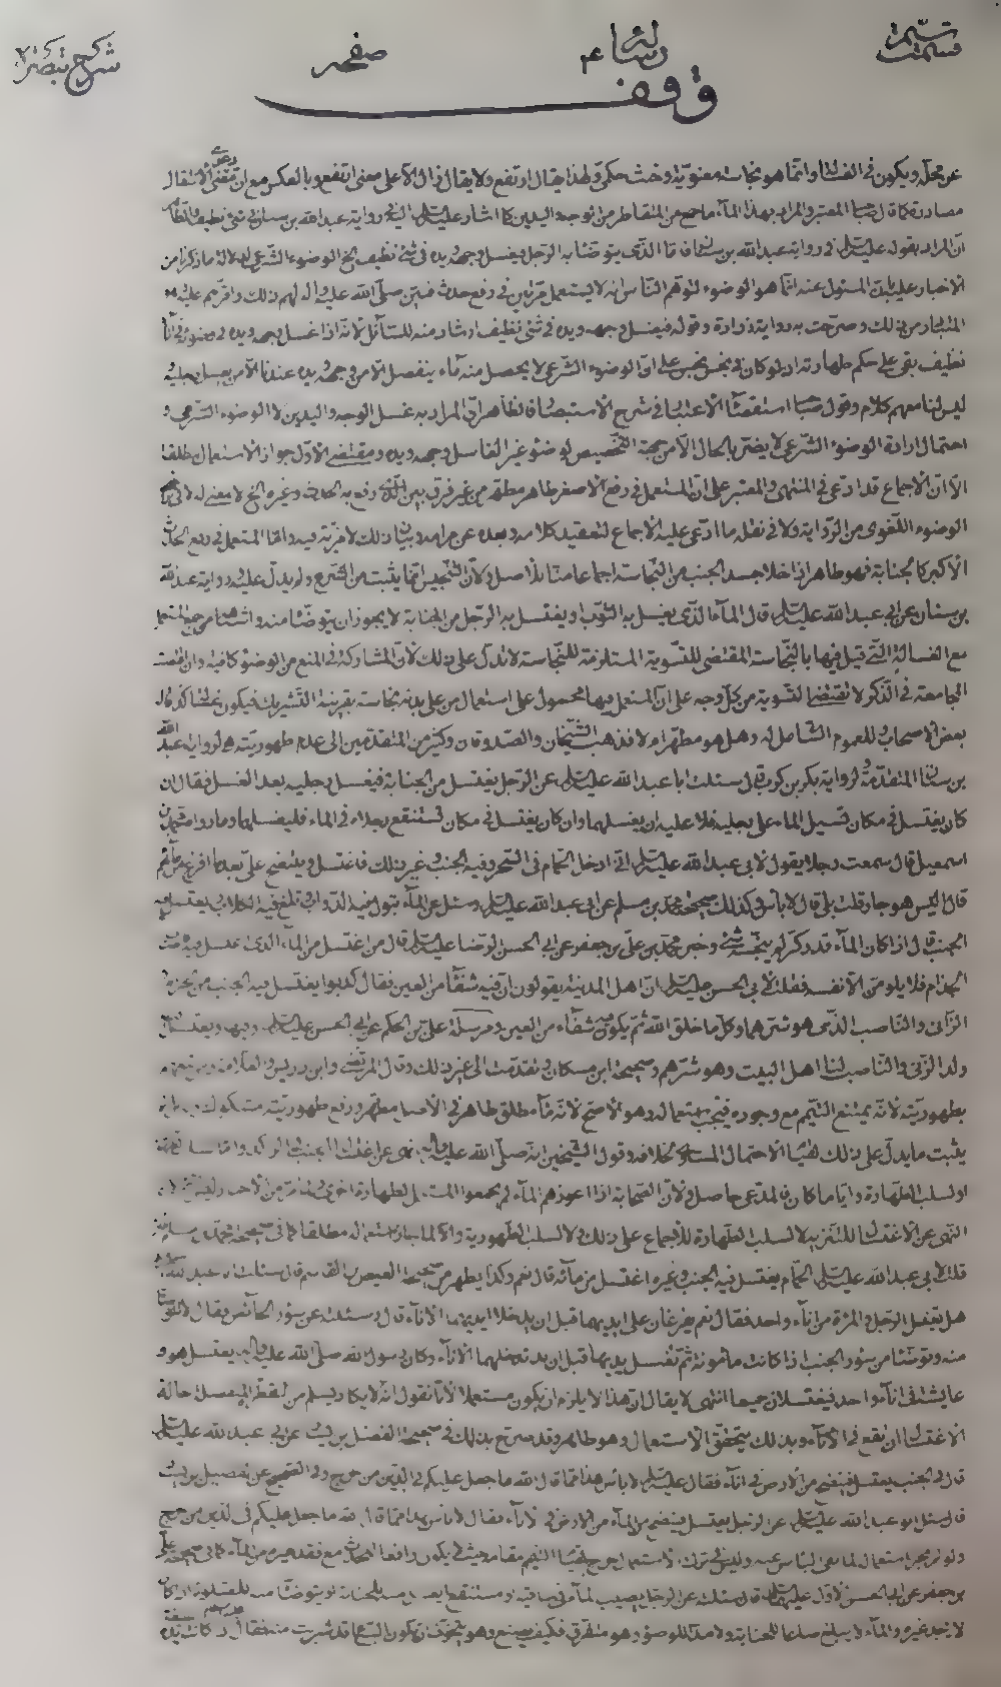 رسالة
صفحه
شرح تبصره
وقف
عن محله ويكون في الغسالة وانما هو نجاسة معنوية وخبث حكمي ولهذا يقال ارتفع ولا يقال زال الا على معنى ارتفع وبالعكس مع ان الانتقال
مصادرة كما قال المعتبر والمراد بهذا الماء ما جمع من المتقاطر من الوجه واليدين كما اشار عليه السلام اليه في رواية عبد الله بن سنان في شيء نظيف
ان المراد بقوله عليه السلام في رواية عبد الله بن سنان فاما الذي يتوضأ به الرجل فيغسل وجهه ويده في شيء نظيف الخ الوضوء الشرعي لدلالة ما ذكرنا من
الاخبار عليه المسئول عنه انما هو الوضوء لتوهم الناس انه لا يستعمل مرتين في رفع حدث فبين صلى الله عليه واله لهم ذلك واقرهم عليه
المتبادر من ذلك وصرحت به رواية زرارة وقوله فيغسل وجهه ويده في شيء نظيف ارشاد منه للسائل لانه اذا غسل وجهه ويده في
نظيف بقي على حكم طهارته اذ لو كان في نجس نجس على ان الوضوء الشرعي لا يحصل منه ماء ينفصل الا من وجهه ويده عندنا الا من يغسل رجليه
ليس لنا معهم كلام وقول استقصاء الاعتبار في شرح الاستبصار فالظاهر ان المراد به غسل الوجه واليدين لا الوضوء الشرعي و
احتمال ارادة الوضوء الشرعي لا يضر بالحال الا من جهة التخصيص لوضوء غير الغاسل وجهه ويده ومقتضى الاول جواز الاستعمال مطلقا
الا ان الاجماع قد ادعي في المنتهى والمعتبر على ان المستعمل في رفع الاصغر طاهر مطهر من غير فرق بين الذي رفع به الحدث وغيره الخ لا معنى له
الوضوء اللغوي من الرواية ولا في نقله ما ادعى عليه الاجماع لتعقيد كلامه وبعده عن مرامه وبيان ذلك لا مزية فيه واما المستعمل في رفع الحدث
الاكبر كالجنابة فهو طاهر اذا خلا جسد الجنب من النجاسة اجماعا منا للاصل ولان التنجيس انما يثبت من الشرع ولم يدل عليه ورواية عبد الله
بن سنان عن ابي عبد الله عليه السلام قال الماء الذي يغسل به الثوب او يغتسل به الرجل من الجنابة لا يجوز ان يتوضأ منه واشباهه
مع الغسالة التي قيل فيها بالنجاسة المقتضي للتسوية المستلزمة للنجاسة لا تدل على ذلك لان المشاركة في المنع من الوضوء كافية وان اقتضت
الجامعة في الذكر لا تقتضي التسوية من كل وجه على ان المستعمل فيها محمول على استعمال من على بدنه نجاسة بقرينة التشريك فيكون
بعض الاصحاب للعموم الشامل له وهل هو مطهر ام لا فذهب الشيخان والصدوقان وكثير من المتقدمين الى عدم طهوريته لرواية عبد الله
بن سنان المتقدمة ولرواية بكر بن كرب قال سئلت ابا عبد الله عليه السلام عن الرجل يغتسل من الجنابة فيغسل رجليه بعد الغسل فقال ان
كان يغتسل في مكان تسيل الماء على رجليه فلا عليه ان يغسلهما وان كان يغتسل في مكان تستنقع رجلاه في الماء فليغسلهما وما رواه
اسمعيل قال سمعت رجلا يقول لابي عبد الله عليه السلام اني ادخل الحمام في السحر وفيه الجنب وغير ذلك فاغتسل وينتضح علي بعد ما افرغ من مائهم
قال اليس هو جار قلت بلى قال لا باس وكذلك صحيحة محمد بن مسلم عن ابي عبد الله عليه السلام وسئل عن الماء تبول فيه الدواب وتلغ فيه الكلاب ويغتسل فيه
الجنب قال اذا كان الماء قدر كر لم ينجسه شيء وخبر محمد بن علي بن جعفر عن ابي الحسن الرضا عليه السلام قال من اغتسل من الماء الذي اغتسل فيه
الجذام فلا يلومن الا نفسه فقلت لابي الحسن عليه السلام ان اهل المدينة يقولون ان فيه شفاء من العين فقال كذبوا يغتسل فيه الجنب من الحرام
الزاني والناصب الذي هو شرهما وكل ما خلق الله ثم يكون فيه شفاء من العين ومرسلة علي بن الحكم عن ابي الحسن عليه السلام وفيها ويغتسل
ولد الزنى والناصب لنا اهل البيت وهو شرهم وصحيحة ابن مسكان وتقدمت الى غير ذلك وقال المرتضى وابن ادريس والعلامة
بطهوريته لانه يمتنع التيمم مع وجوده فيجب استعماله وهو الاصح لانه ماء مطلق طاهر في الاصل مطهر ورفع طهوريته مشكوك
يثبت ما يدل على ذلك الاحتمال المساوي بخلافه وقول الشيخين انه صلى الله عليه واله نهى عن اغتسال الجنب في الراكد
او لسلب الطهارة وايا ما كان فالمدعى حاصل ولان الصحابة اذا اعوزهم الماء لم يجمعوا المستعمل لطهارة اخرى
النهي عن الاغتسال للتنزيه لا لسلب الطهارة للاجماع على ذلك ولا لسلب الطهورية والا لما جاز استعماله مطلقا كما في صحيحة محمد بن مسلم
قلت لابي عبد الله عليه السلام الحمام يغتسل فيه الجنب وغيره اغتسل من مائه قال نعم وكذا يظهر من صحيحة العيص بن القاسم قال سئلت ابا عبد الله
هل يغتسل الرجل والمرئة من اناء واحد فقال نعم يفرغان على ايديهما قبل ان يدخلا ايديهما الاناء قال وسئلته عن سؤر الحائض فقال لا توضأ
منه وتوضأ من سؤر الجنب اذا كانت مامونة ثم تغسل يديها قبل ان تدخلهما الاناء وكان رسول الله صلى الله عليه واله يغتسل هو و
عايشة في اناء واحد فيغتسلان جميعا انتهى لا يقال ان هذا لا يلزم ان يكون مستعملا لانا نقول انه لا يكاد يسلم من حالة
الاغتسال ان تقع في الاناء وبذلك يتحقق الاستعمال وهو طاهر وقد صرح بذلك في صحيحة الفضيل عن ابي عبد الله عليه السلام
قال في الجنب يغتسل فينتضح من الارض في اناء فقال عليه السلام لا باس هذا مما قال الله ما جعل عليكم في الدين من حرج وفي الصحيح عن فضيل
قال سئل ابو عبد الله عليه السلام عن الرجل يغتسل فينتضح من الماء من الارض في الاناء فقال لا باس هذا مما قال الله ما جعل عليكم في الدين من حرج
ولو لم يجز استعماله لما نفى الباس عنه وليس في ترك الاستعمال حرج لقيام التيمم مقامه حيث لا يكون رافعا للحدث مع فقد غيره من الماء كما في صحيحة علي
بن جعفر عن ابي الحسن الاول عليه السلام قال سئلته عن الرجل يصيب الماء في ساقية او مستنقع ايغتسل منه للجنابة او يتوضأ منه للصلوة اذا كان
لا يجد غيره والماء لا يبلغ صاعا للجنابة ولا مدا للوضوء وهو متفرق فكيف يصنع وهو يتخوف ان تكون السباع قد شربت منه فقال ان كانت يده